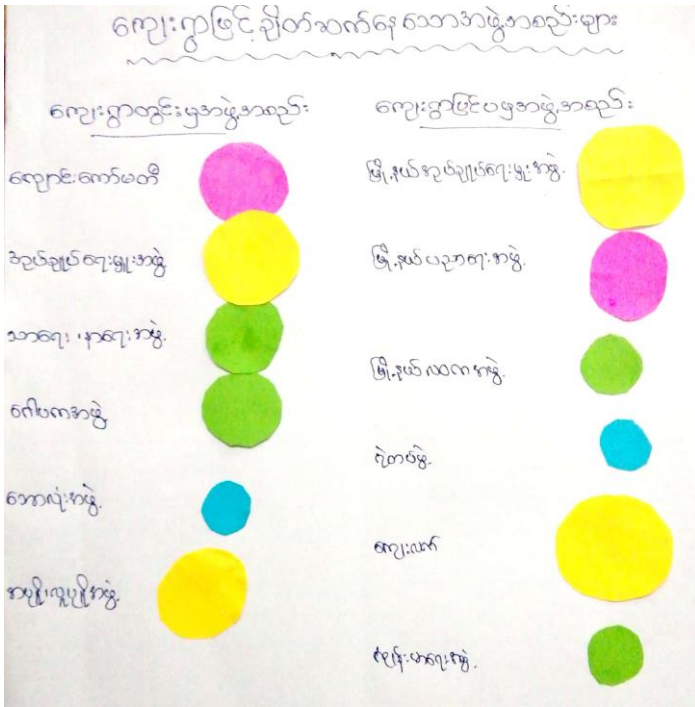 ကျေးရွာဖြင့်ချိတ်ဆက်နေသောအဖွဲ့အစည်းများ
ကျေးရွာတွင်းမှအဖွဲ့အစည်း
ကျောင်းကော်မတီ
အုပ်ချုပ်ရေးမှူးအဖွဲ့
သာရေး၊နာရေးအဖွဲ့
ဂေါပကအဖွဲ့
ဘောလုံးအဖွဲ့
အပျိုလူပျိုအဖွဲ့
ကျေးရွာပြင်ပမှအဖွဲ့အစည်း
မြို့နယ်အုပ်ချုပ်ရေးမှူးအဖွဲ့
မြို့နယ်ပညာရေးအဖွဲ့
မြို့နယ်လဝကအဖွဲ့
ရဲတပ်ဖွဲ့
ကျေးလက်
ကျန်းမာရေးအဖွဲ့